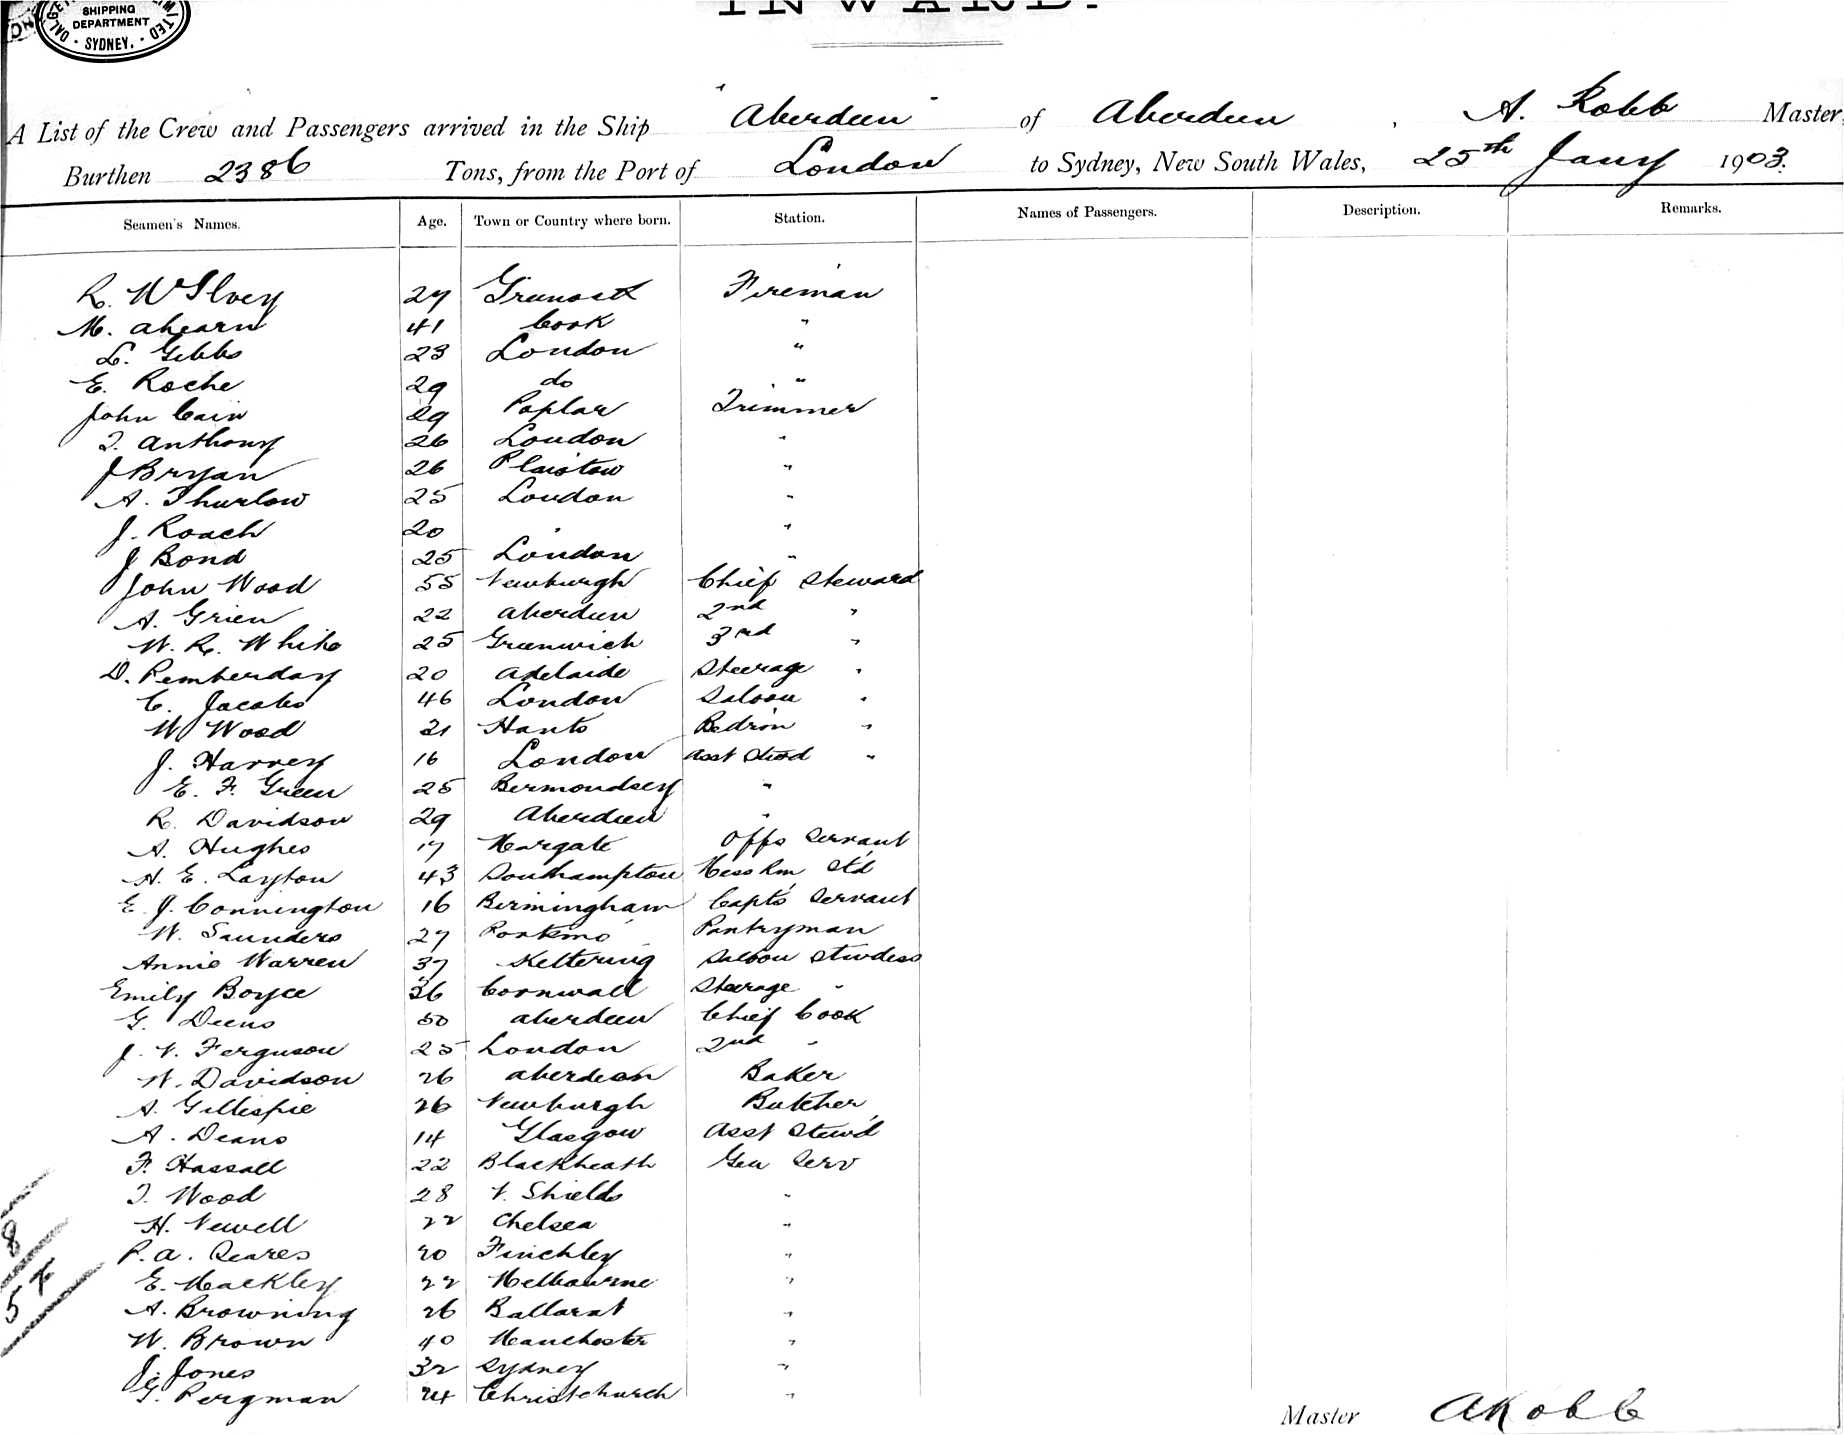 SHIPPING
DEPARTMENT
SYDNEY.
INWARD.
A List of the Crew and Passengers arrived in the Ship "Aberdeen" of Aberdeen, A. Robb Master,
Burthen 2386 Tons, from the Port of London to Sydney, New South Wales, 25th Jany 1903.
Seamen's Names. Age. Town or Country where born. Station. Names of Passengers. Description. Remarks.
R. McIlvey 27 Greenock Fireman
M. Ahearn 41 Cork "
L. Gibbs 23 London "
E. Roche 29 do "
John Cain 29 Poplar Trimmer
T. Anthony 26 London "
J Bryan 26 Plaistow "
A. Thurlow 25 London "
J. Roach 20 " "
J Bond 25 London "
John Wood 55 Newburgh Chief Steward
A. Grien 22 Aberdeen 2nd "
W. R. White 25 Greenwich 3rd "
D. Pemberday 20 Adelaide Steerage "
C. Jacobs 46 London Saloon "
W Wood 21 Hants Bedrm "
J. Harvey 16 London Asst Stwd "
E. F. Green 25 Bermondsey "
R. Davidson 29 Aberdeen "
A. Hughes 17 Margate Offs Servant
H. E. Layton 43 Southampton Mess Rm Std
E. J. Connington 16 Birmingham Capts Servant
W. Saunders 27 Portsmo Pantryman
Annie Warren 37 Kettering Saloon Stwdess
Emily Boyce 36 Cornwall Steerage "
G. Deens 50 Aberdeen Chief Cook
J. N. Ferguson 25 London 2nd "
W. Davidson 26 Aberdeen Baker
A. Gillespie 26 Newburgh Butcher
A. Deans 14 Glasgow Asst Stew'd
F. Hassall 22 Blackheath Gen Serv
T. Wood 28 N. Shields "
H. Newell 22 Chelsea "
P. A. Seares 20 Finchley "
E. Mackley 22 Melbourne "
A. Browning 26 Ballarat "
W. Brown 40 Manchester "
J. Jones 32 Sydney "
G. Pergman 24 Christchurch "
8
54
Master A Robb